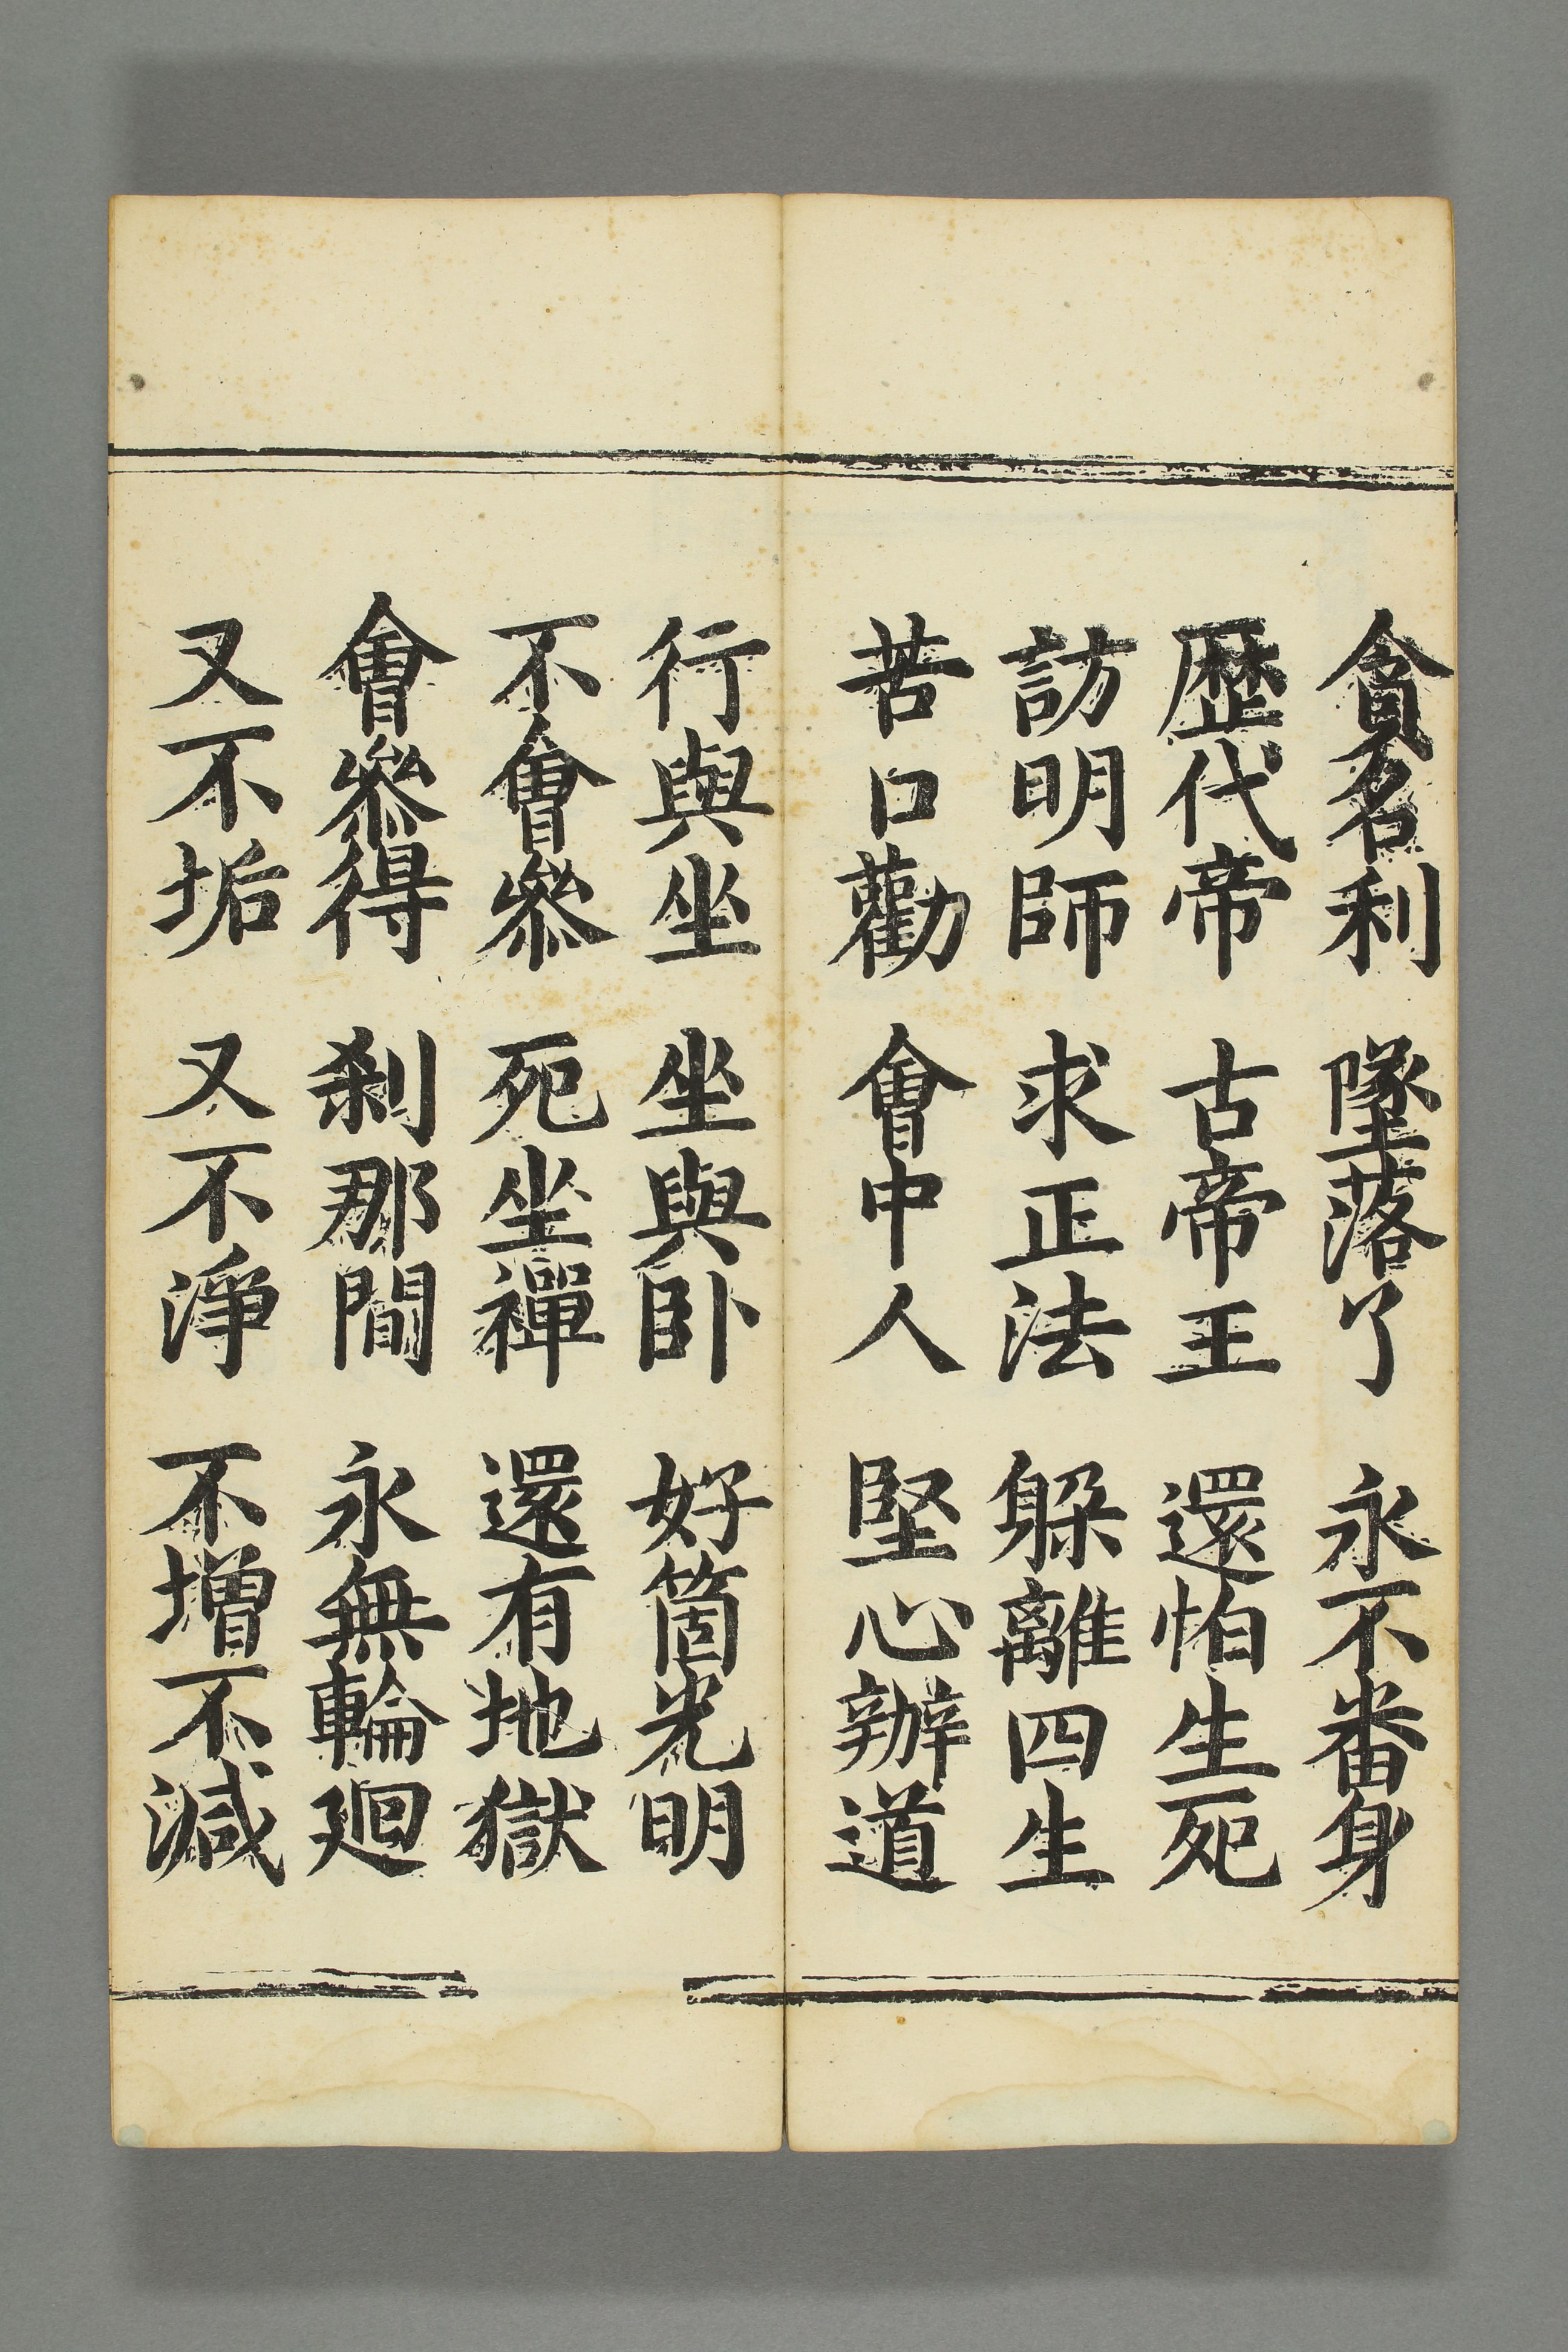 貪名利 墜落了 永不番身
歷代帝 古帝王 還怕生死
訪明師 求正法 躲離四生
苦口勸 會中人 堅心辦道
行與坐 坐與臥 好箇光明
不會叅 死坐禪 還有地獄
會叅得 剎那間 永無輪廻
又不垢 又不淨 不增不減